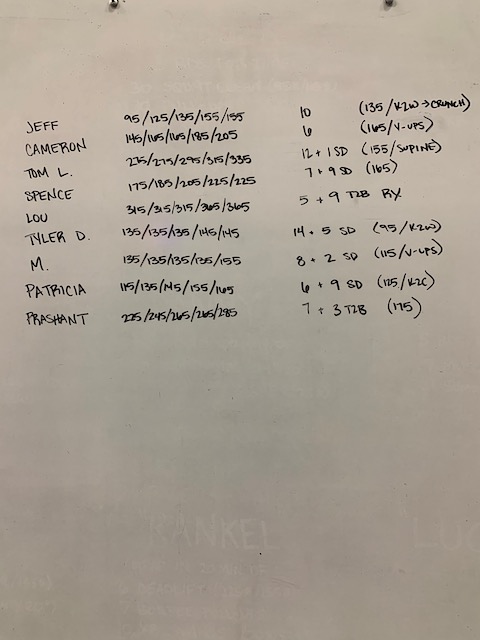 JEFF 95/125/135/155/155 10 (135/K2W→CRUNCH)
CAMERON 145/165/165/185/205 6 (165/V-UPS)
TOM L. 275/275/295/315/335 12 + 1 SD (155/SUPINE)
SPENCE 175/185/205/225/225 7 + 9 SD (165)
LOU 315/315/315/365/365 5 + 9 T2B RX
TYLER D. 135/135/135/145/145 14 + 5 SD (95/K2W)
M. 135/135/135/135/155 8 + 2 SD (115/V-UPS)
PATRICIA 115/135/145/155/165 6 + 9 SD (125/K2C)
PRASHANT 225/245/265/265/285 7 + 3 T2B (175)
KANKEL LUC